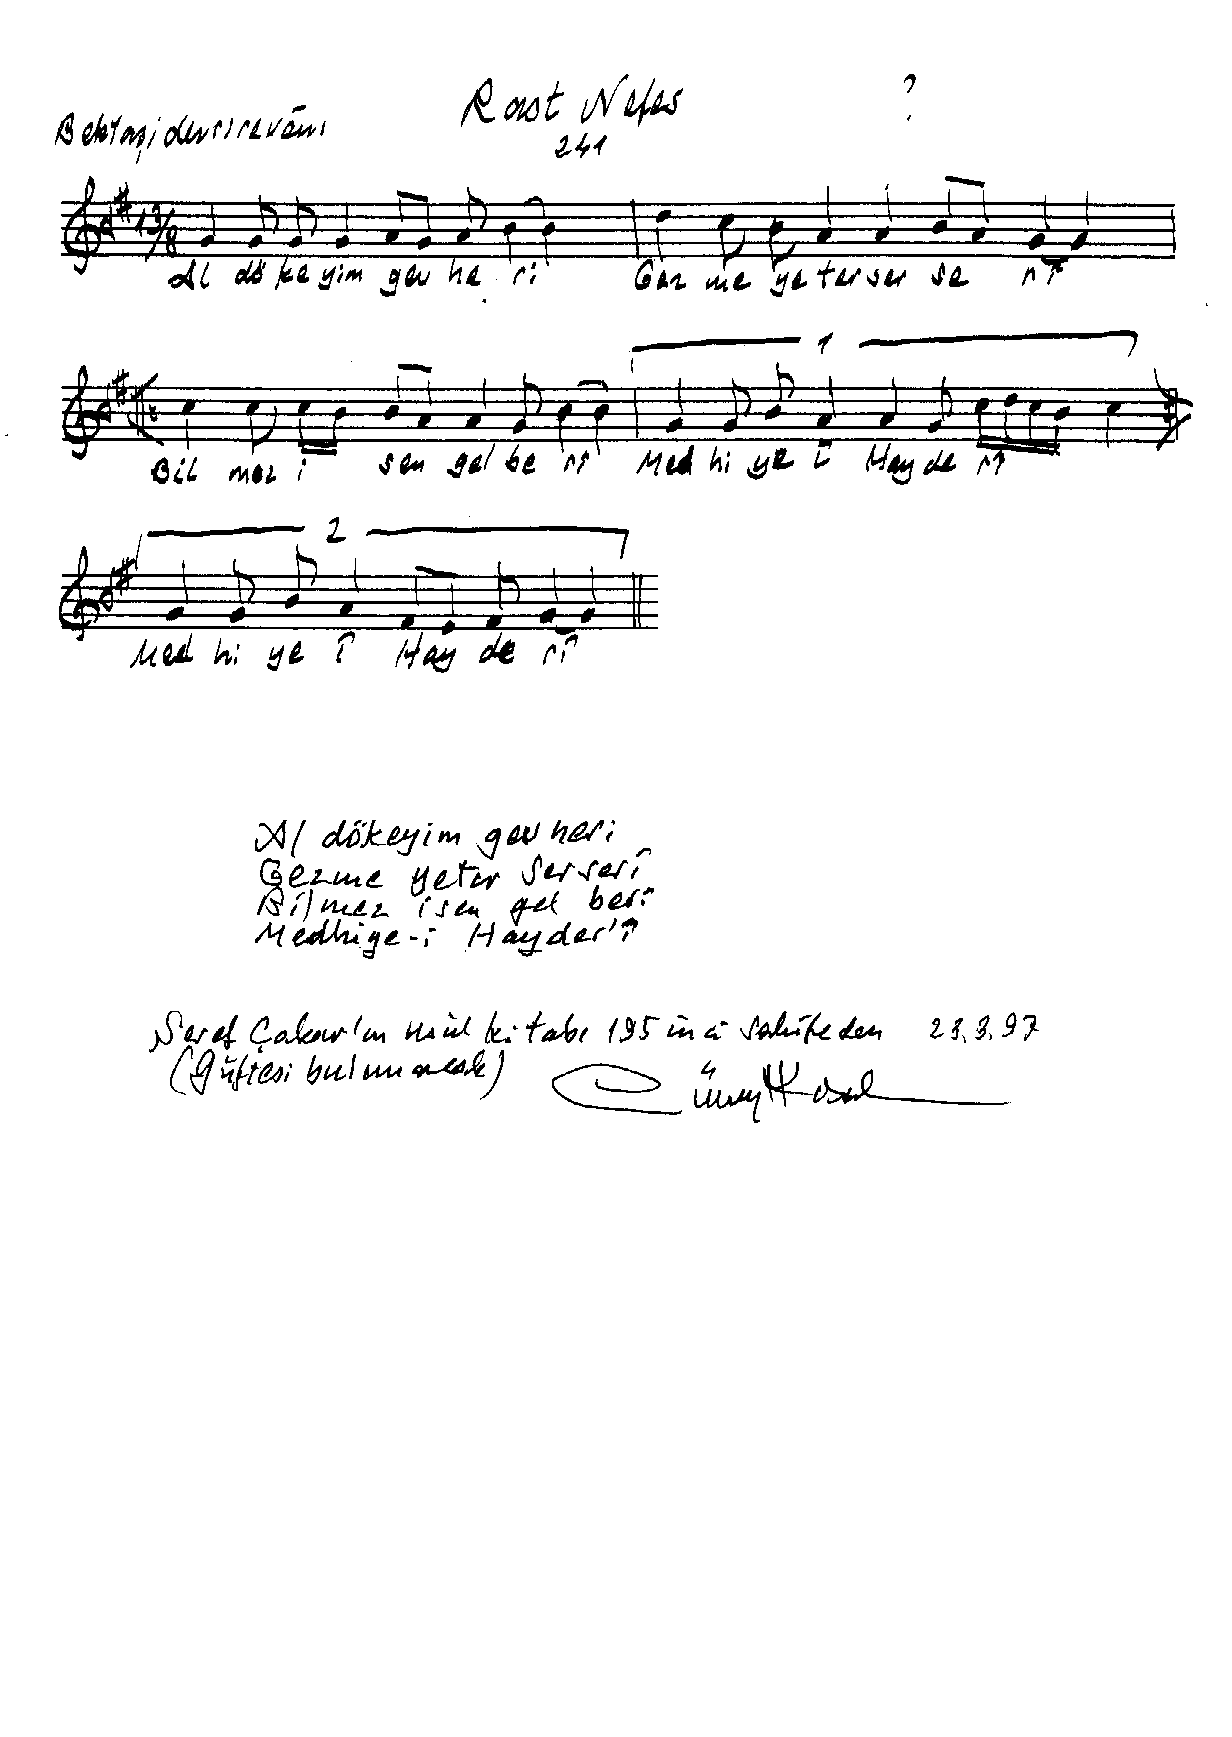 Rast Nefes ?
Bektaşi devrirevânı
241
13/8
Al dö ke yim gev he ri Gez me ye ter ser se rî
1
Bil mez i sen gel be rî Med hi ye î Hay de rî
2
Med hi ye î Hay de rî
Al dökeyim gevheri
Gezme yeter serserî
Bilmez isen gel berî
Medhiye-i Hayder'î
Şeref Çakar'ın usûl kitabı 195 inci sahifeden 23.3.97
(Güftesi bulunarak)